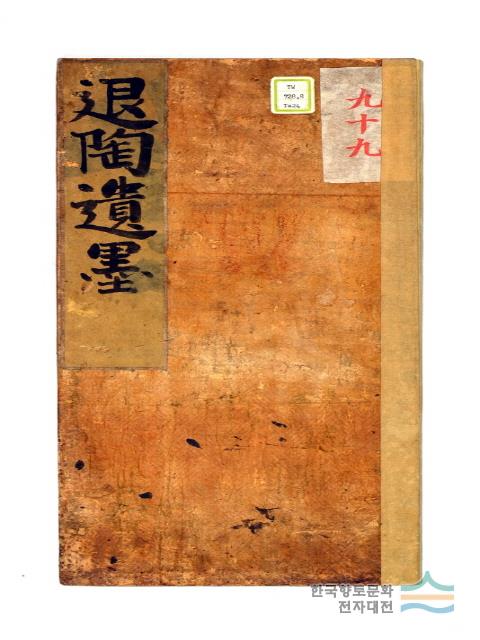 退陶遺墨
TW
928.8
九十九
한국향토문화
전자대전